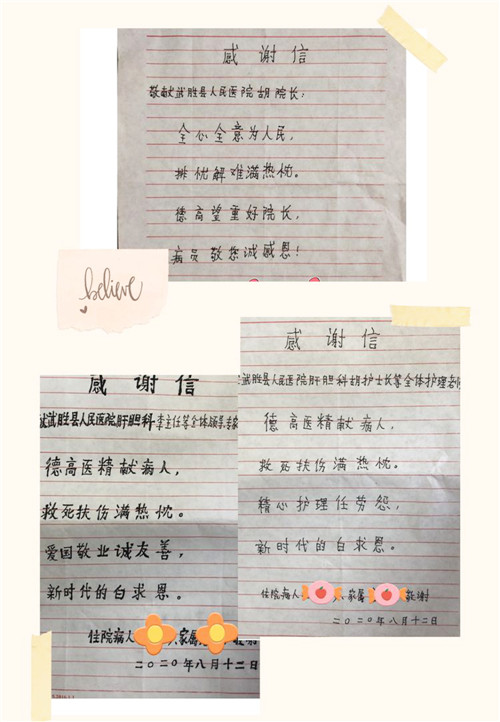 感谢信
敬献武胜县人民医院胡院长：
全心全意为人民，
排忧解难满热忱。
德高望重好院长，
病员敬您诚感恩！
believe
感谢信
武胜县人民医院肝胆科胡护士长等全体护理老师
德高医精献病人，
救死扶伤满热忱。
精心护理任劳怨，
新时代的白求恩。
住院病人 家属 敬谢
二〇二〇年八月十二日
感谢信
献武胜县人民医院肝胆科李主任等全体领导专家
德高医精献病人，
救死扶伤满热忱。
爱国敬业诚友善，
新时代的白求恩。
住院病人 家属 敬谢
二〇二〇年八月十二日